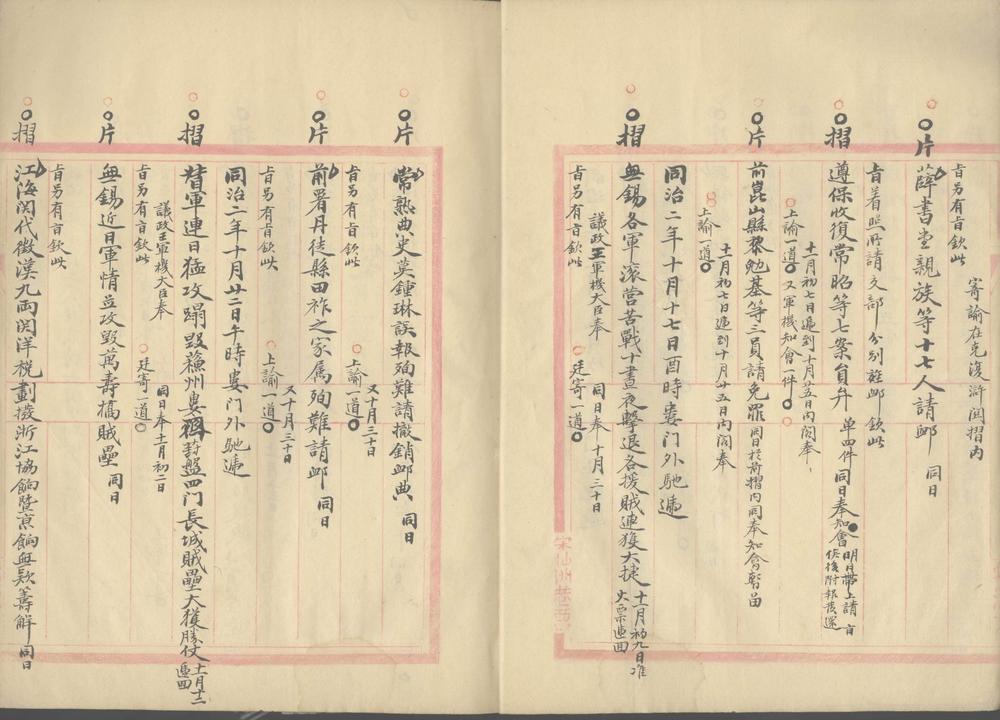 旨另有旨欽此
寄諭在克復滸関摺內
片 薛書堂親族等十七人請卹 同日
旨着照所請 文部 分別旌卹 欽此
摺 遵保收復常昭等七案員弁 單四件 同日奉 知會 明日帶上請旨
十一月初七日遞到十月廿五日內閣奉
上諭一道 又軍機知會一件
片 前崑山縣黎勉基等三員請免罪 同日 於前摺內同奉知會暫留
十一月初七日遞到十月廿五日內閣奉
上諭一道
同治二年十月十七日酉時婁門外馳遞
摺 無錫各軍滾營苦戰十晝夜擊退各援賊連獲大捷 十一月初九日准火票遞回
議政王軍機大臣奉 同日奉 十月三十日
旨另有旨欽此 廷寄一道
宋仙洲巷
片 常熟典史莫鍾琳誤報殉難請撤銷卹典 同日
又十月三十日
旨另有旨欽此 上諭一道
片 前署丹徒縣田祚之家属殉難請卹 同日
又十月三十日
旨另有旨欽此 上諭一道
同治二年十月廿二日午時婁門外馳遞
摺 督軍連日猛攻蹋毀蘓州婁葑盤四门長城賊壘大獲勝仗 十一月十二遞回
議政王軍機大臣奉 同日奉十一月初二日
旨另有旨欽此 廷寄一道
片 無錫近日軍情並攻毀萬壽橋賊壘 同日
旨另有旨欽此
摺 江海関代徵漢九両関洋稅劃撥浙江協餉暨京餉無欵籌解 同日